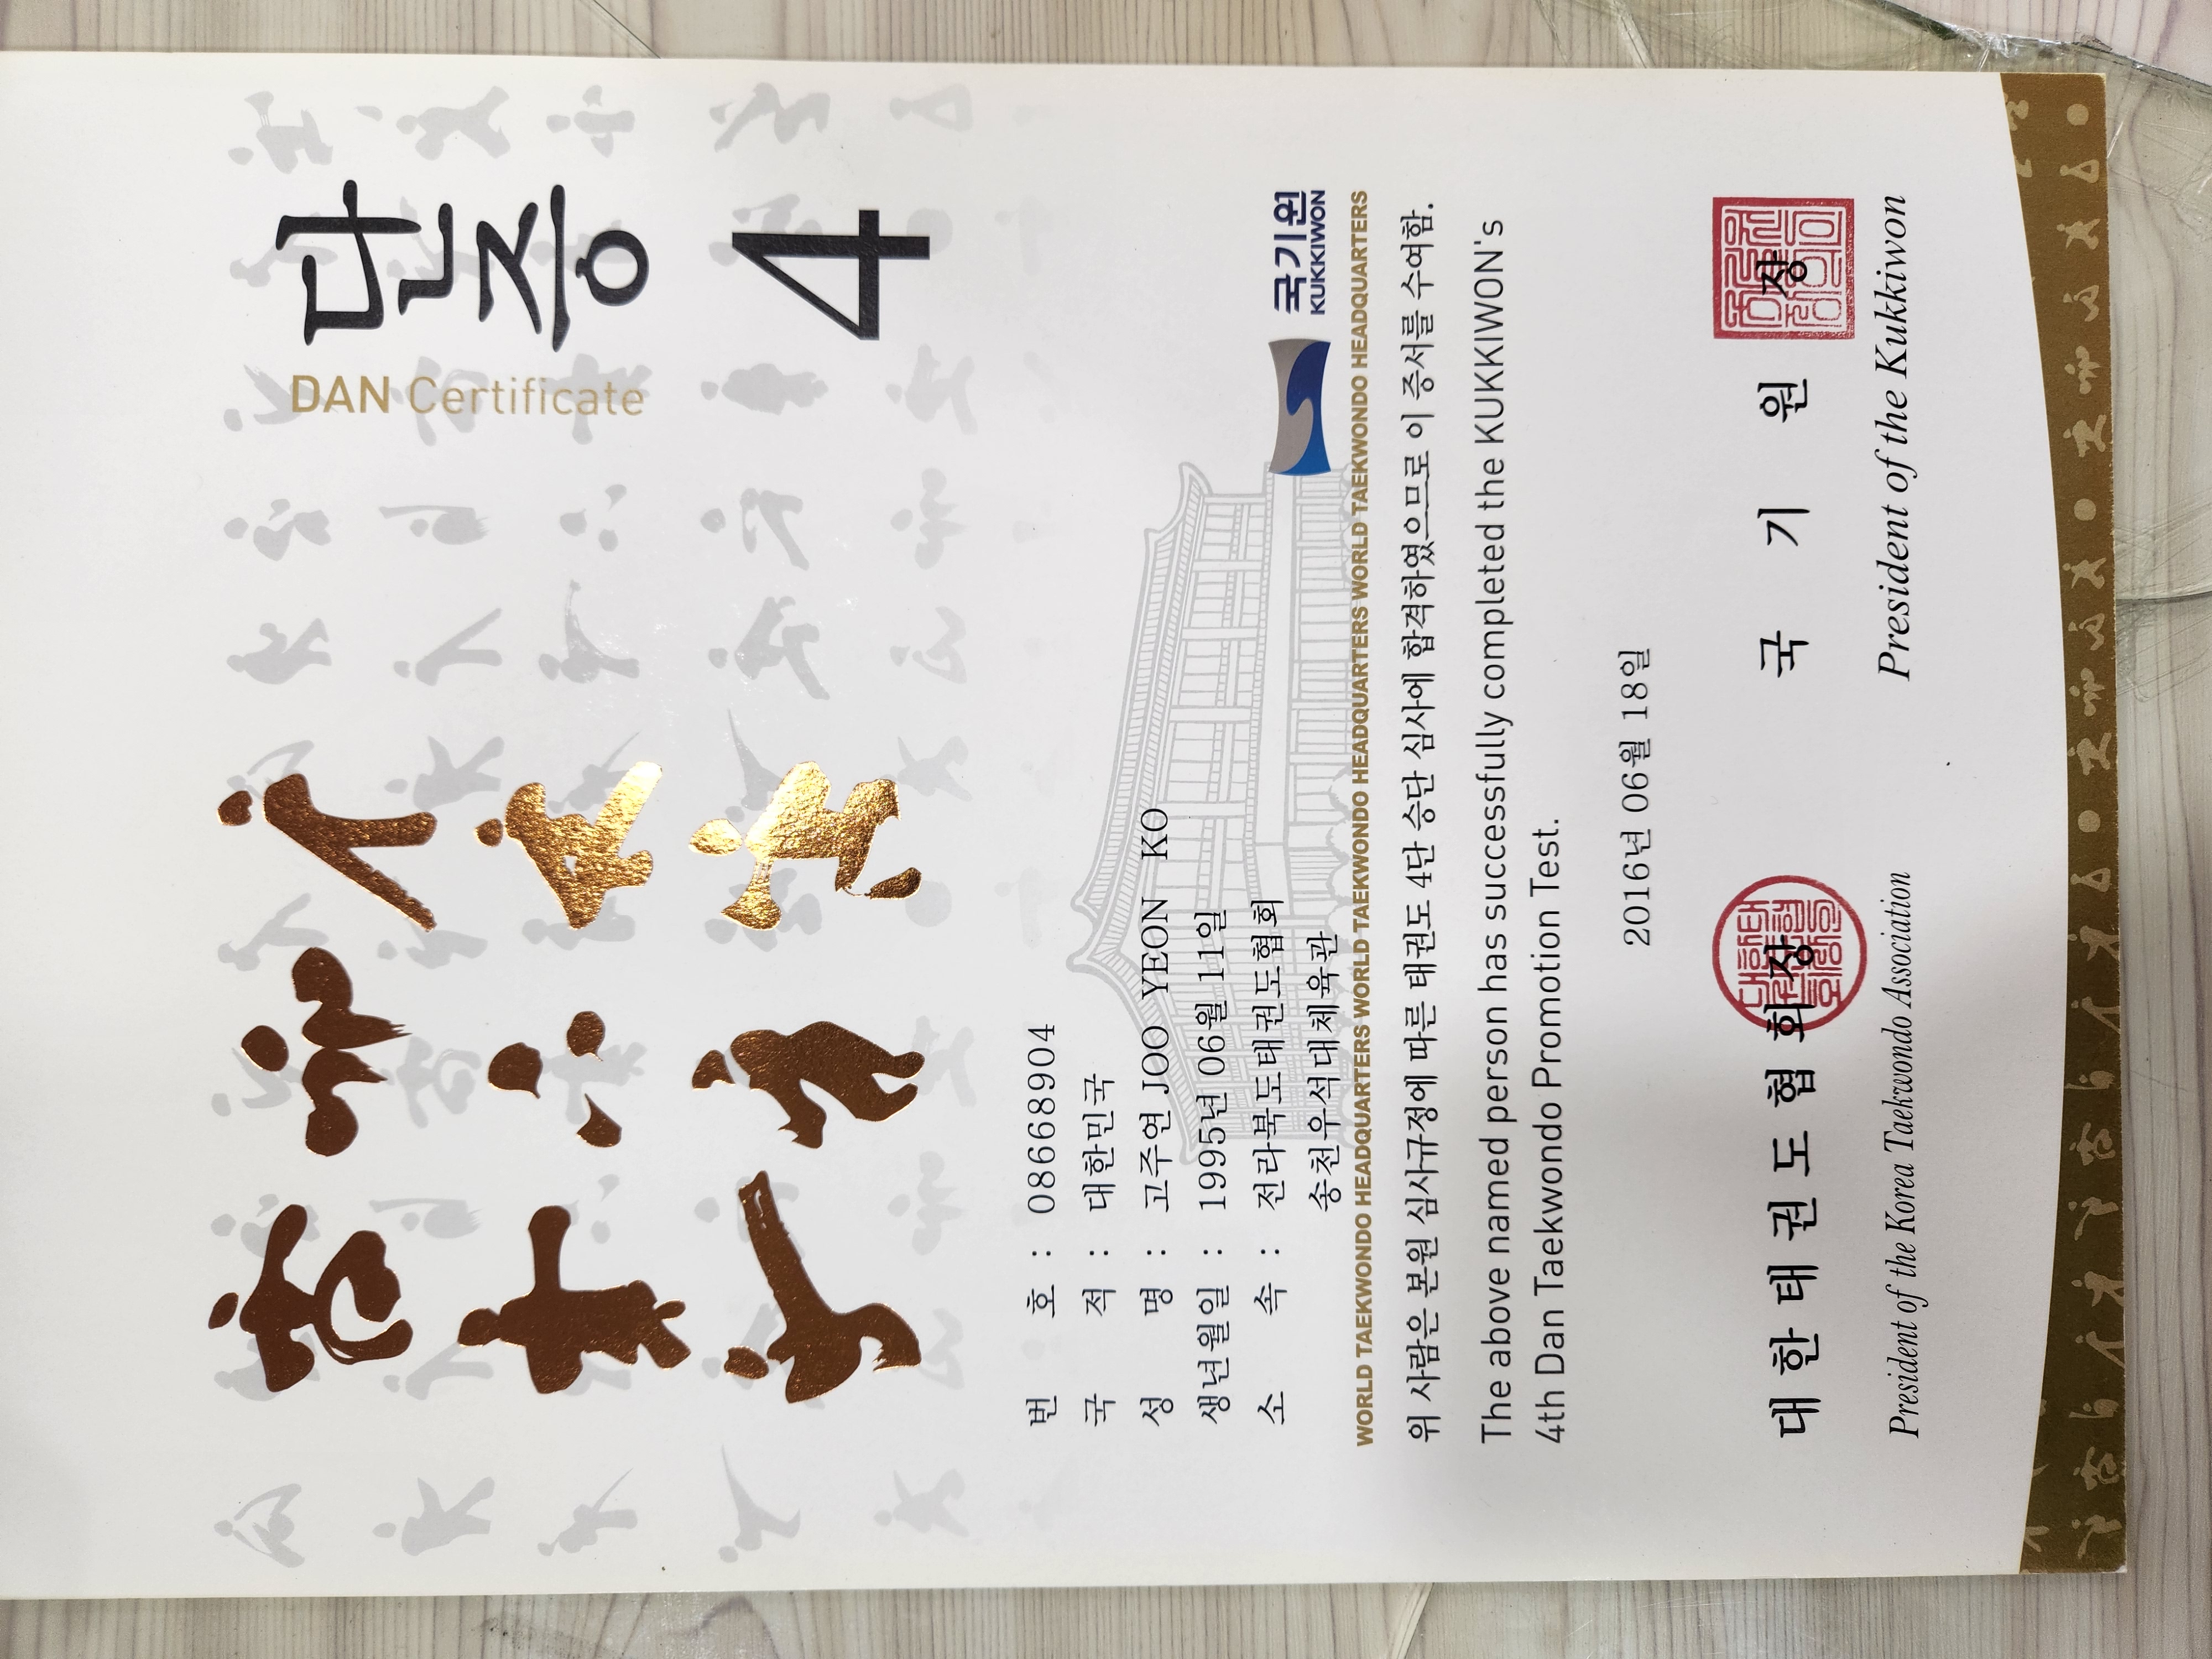 단증
DAN Certificate
4
번 호 : 08668904
국 적 : 대한민국
성 명 : 고주연 JOO YEON KO
생년월일 : 1995년 06월 11일
소 속 : 전라북도태권도협회
송천우석대체육관
국기원
KUKKIWON
WORLD TAEKWONDO HEADQUARTERS WORLD TAEKWONDO HEADQUARTERS WORLD TAEKWONDO HEADQUARTERS WORLD TAEKWONDO HEADQUARTERS
위 사람은 본원 심사규정에 따른 태권도 4단 승단 심사에 합격하였으므로 이 증서를 수여함.
The above named person has successfully completed the KUKKIWON's
4th Dan Taekwondo Promotion Test.
2016년 06월 18일
대한태권도협회장 국기원장
President of the Korea Taekwondo Association President of the Kukkiwon